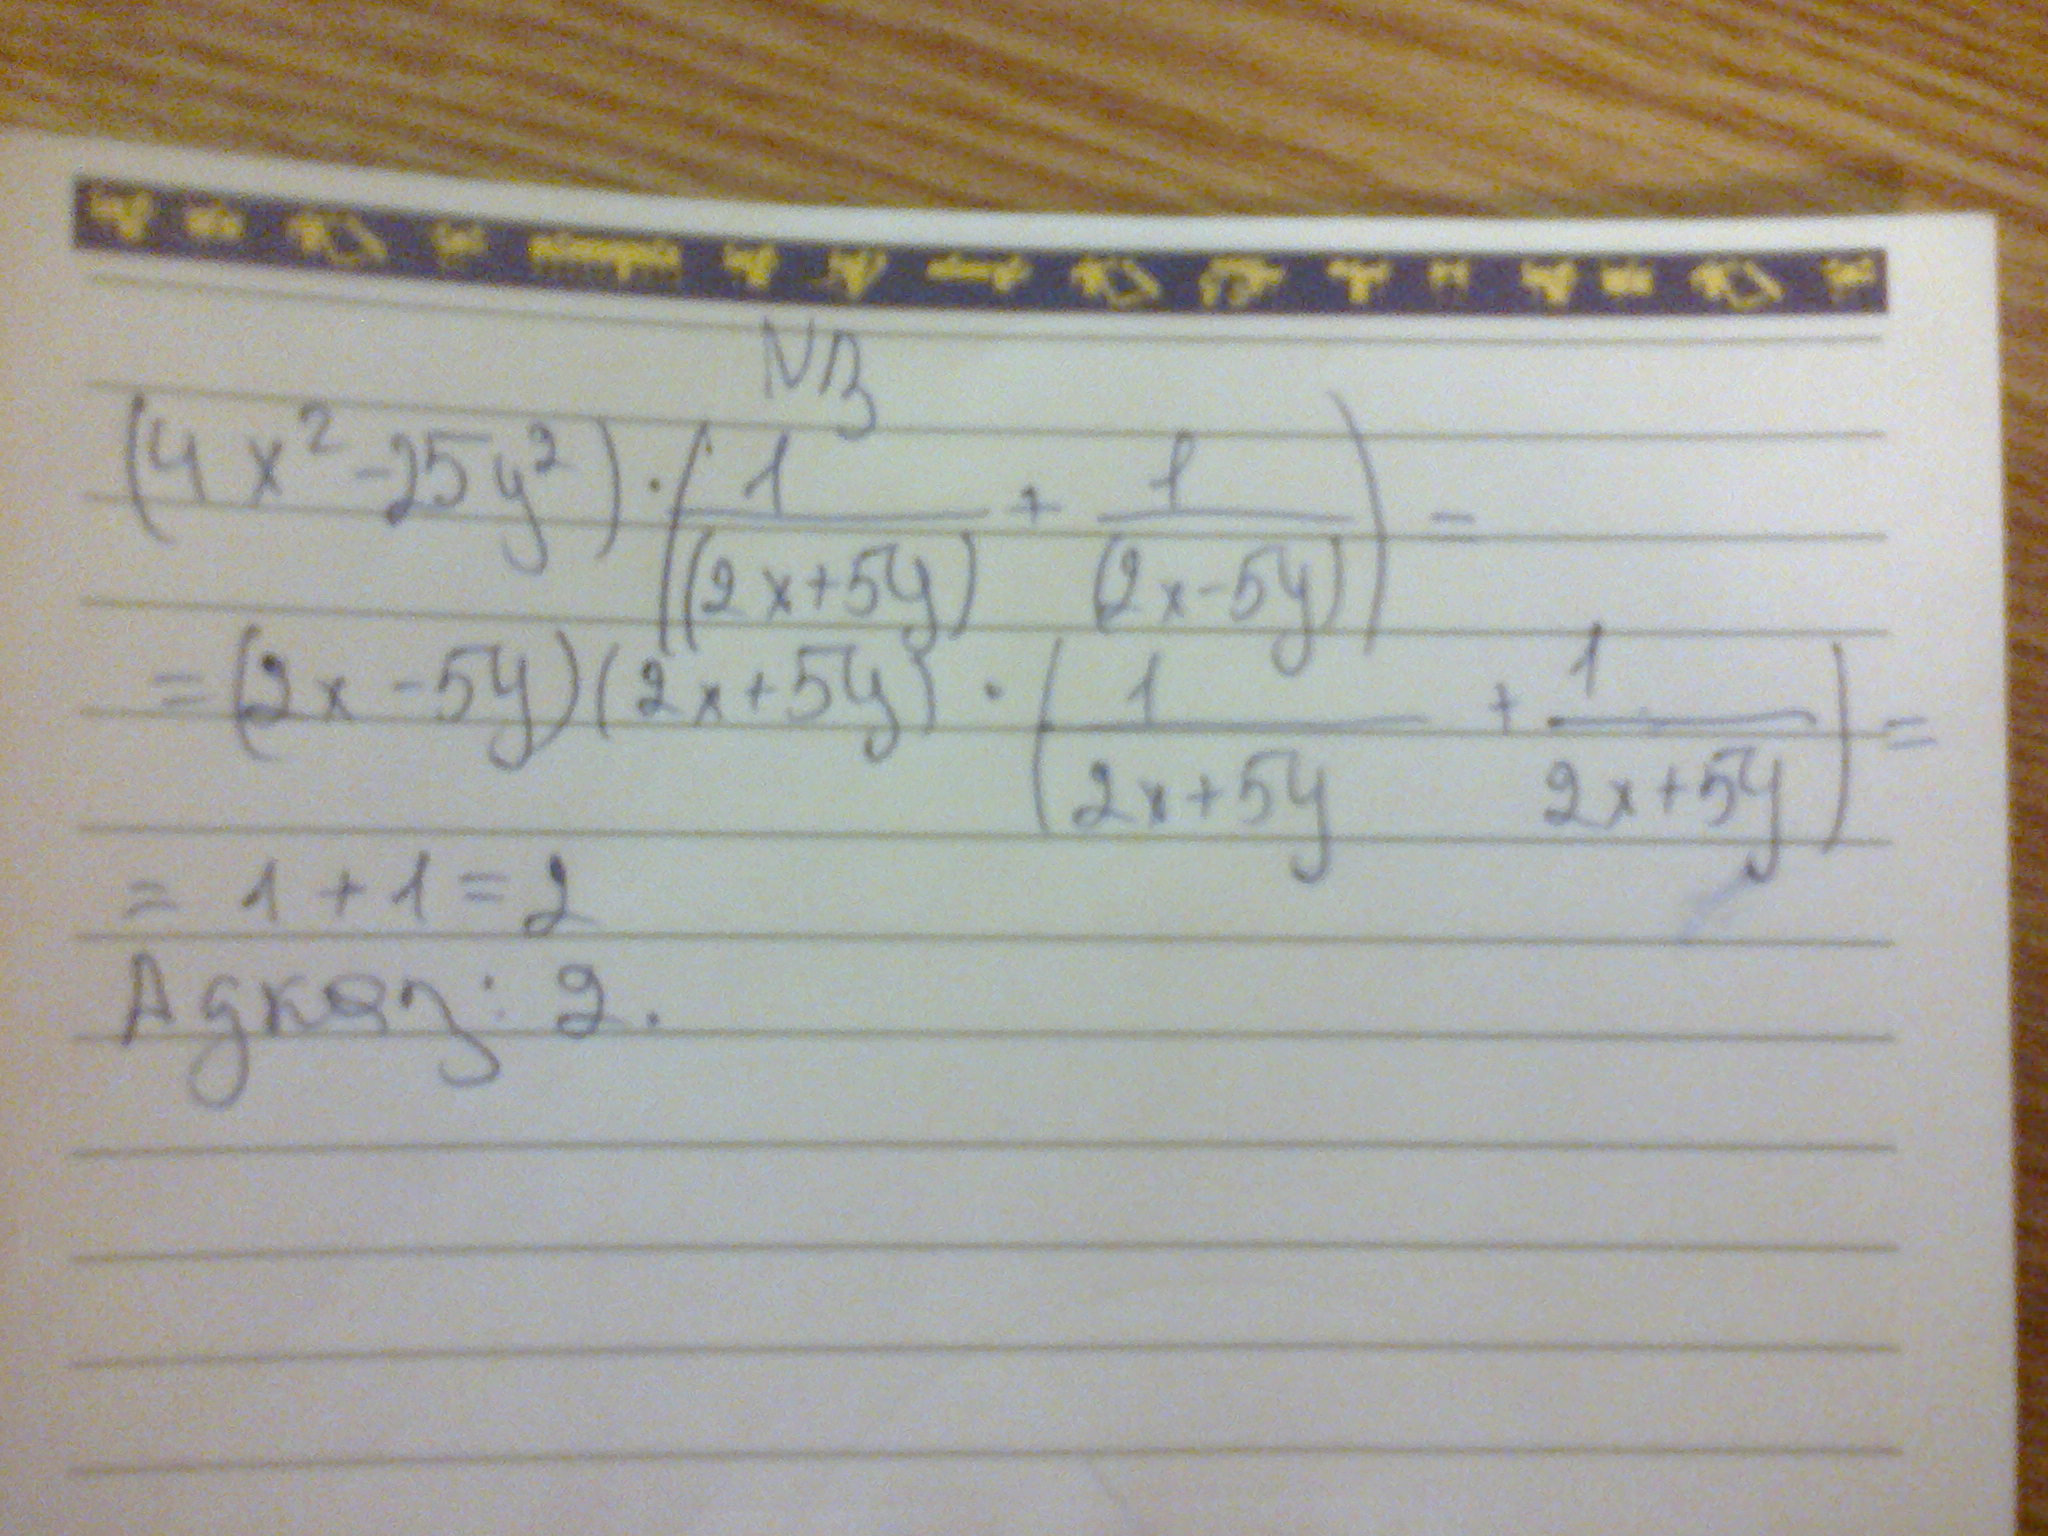 N3
(4x² - 25y²) · (1/(2x+5y) + 1/(2x-5y)) =
= (2x - 5y)(2x + 5y) · (1/2x+5y + 1/2x+5y) =
= 1 + 1 = 2
Адказ: 2.